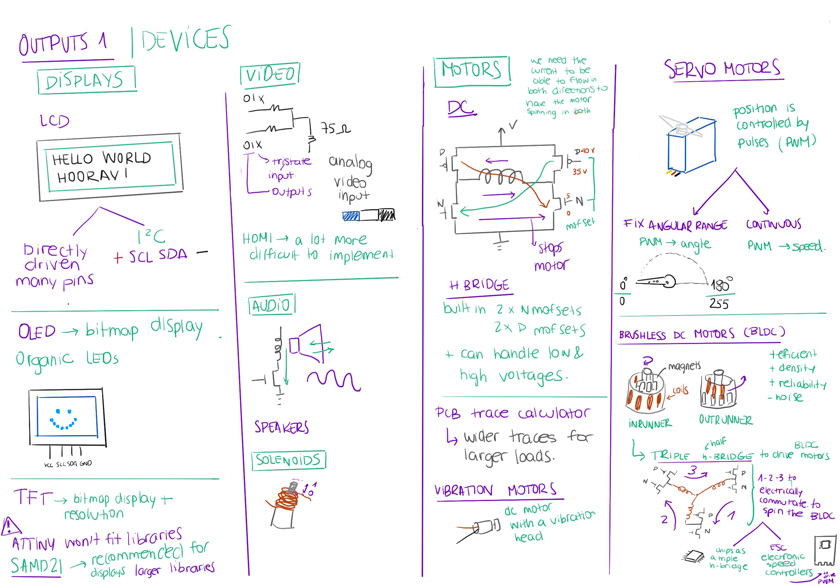 OUTPUTS 1 | DEVICES
DISPLAYS
LCD
HELLO WORLD
HOORAY!
Directly
driven
many pins
I²C
+ SCL SDA -
OLED → bitmap display
Organic LEDs
VCC SCL SDA GND
TFT → bitmap display +
resolution
ATTINY won't fit libraries
SAMD21 → recommended for
displays larger libraries
VIDEO
01X
01X
75Ω
tristate
input
outputs
analog
video
input
HDMI → a lot more
difficult to implement
AUDIO
SPEAKERS
SOLENOIDS
MOTORS
we need the
current to be
able to flow in
both directions to
have the motor
spinning in both
DC
V
P
P
N
N
35V
5
0
mosfet
stops
motor
H BRIDGE
built in 2 x N mofsets
2 x P mofsets
+ can handle low &
high voltages.
PCB trace calculator
↳ wider traces for
larger loads.
VIBRATION MOTORS
dc motor
with a vibration
head
SERVO MOTORS
position is
controlled by
pulses (PWM)
FIX ANGULAR RANGE
PWM → angle
CONTINUOUS
PWM → speed.
0°
0
180°
255
BRUSHLESS DC MOTORS (BLDC)
magnets
coils
INRUNNER
OUTRUNNER
+ efficient
+ density
+ reliability
- noise
half
↳ TRIPLE h-BRIDGE to drive BLDC motors
P
N
3
P
N
2
1
P
N
1-2-3 to
electrically
commutate to
spin the BLDC
chips as
a triple
h-bridge
ESC
electronic
speed
controllers
PWM